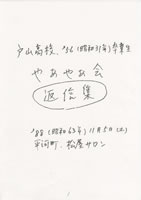 戸山高校、'56 (昭和31年) 卒業生
やあやあ会
返信集
'88 (昭和63年) 11月5日 (土)
平河町、松屋サロン